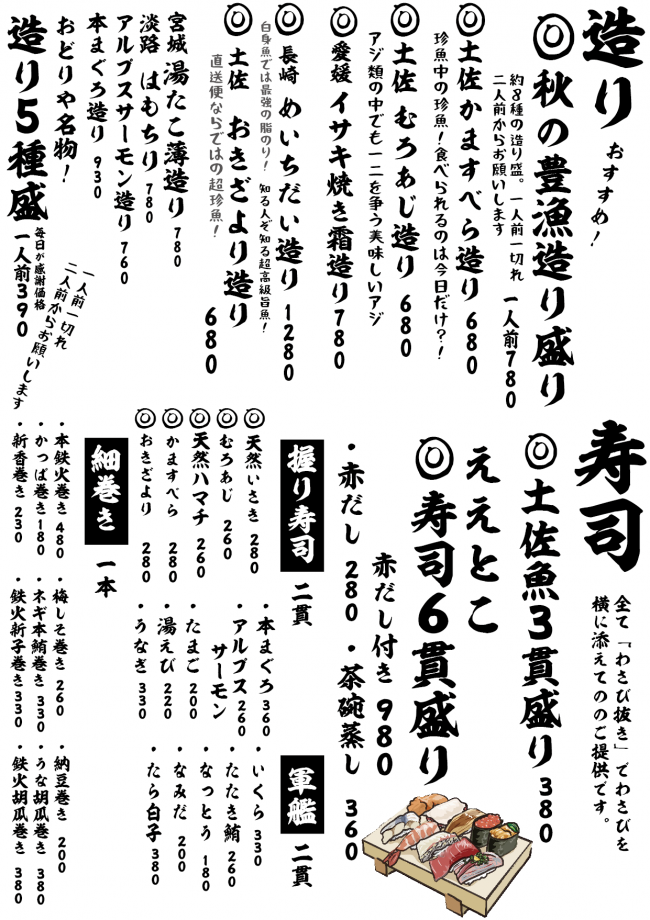 造り おすすめ！
◎秋の豊漁造り盛り 一人前780
約8種の造り盛。一人前一切れ
二人前からお願いします
◎土佐 かますべら造り 680
珍魚中の珍魚！食べられるのは今日だけ？！
◎土佐 むろあじ造り 680
アジ類の中でも一二を争う美味しいアジ
◎愛媛 イサキ焼き霜造り780
◎長崎 めいちだい造り 1280
白身魚では最強の脂のり！ 知る人ぞ知る超高級旨魚！
◎土佐 おきざより造り 680
直送便ならではの超珍魚！
宮城 湯たこ薄造り 780
淡路 はもちり 780
アルプスサーモン造り 760
本まぐろ造り 930
おどりや名物！
造り5種盛 一人前390
毎日が感謝価格
一人前一切れ
二人前からお願いします
寿司
全て「わさび抜き」でわさびを
横に添えてののご提供です。
◎土佐魚3貫盛り 380
ええとこ
◎寿司6貫盛り
赤だし付き 980
・赤だし 280 ・茶碗蒸し 360
握り寿司 二貫
◎天然いさき 280
◎むろあじ 260
◎天然ハマチ 260
◎かますべら 280
◎おきざより 280
・本まぐろ 360
・アルプスサーモン 260
・たまご 200
・湯えび 220
・うなぎ 330
軍艦 二貫
・いくら 330
・たたき鮪 260
・なっとう 180
・なみだ 200
・たら白子 380
細巻き 一本
・本鉄火巻き 480
・かっぱ巻き180
・新香巻き 230
・梅しそ巻き 260
・ネギ本鮪巻き 330
・鉄火新子巻き330
・納豆巻き 200
・うな胡瓜巻き 380
・鉄火胡瓜巻き 380